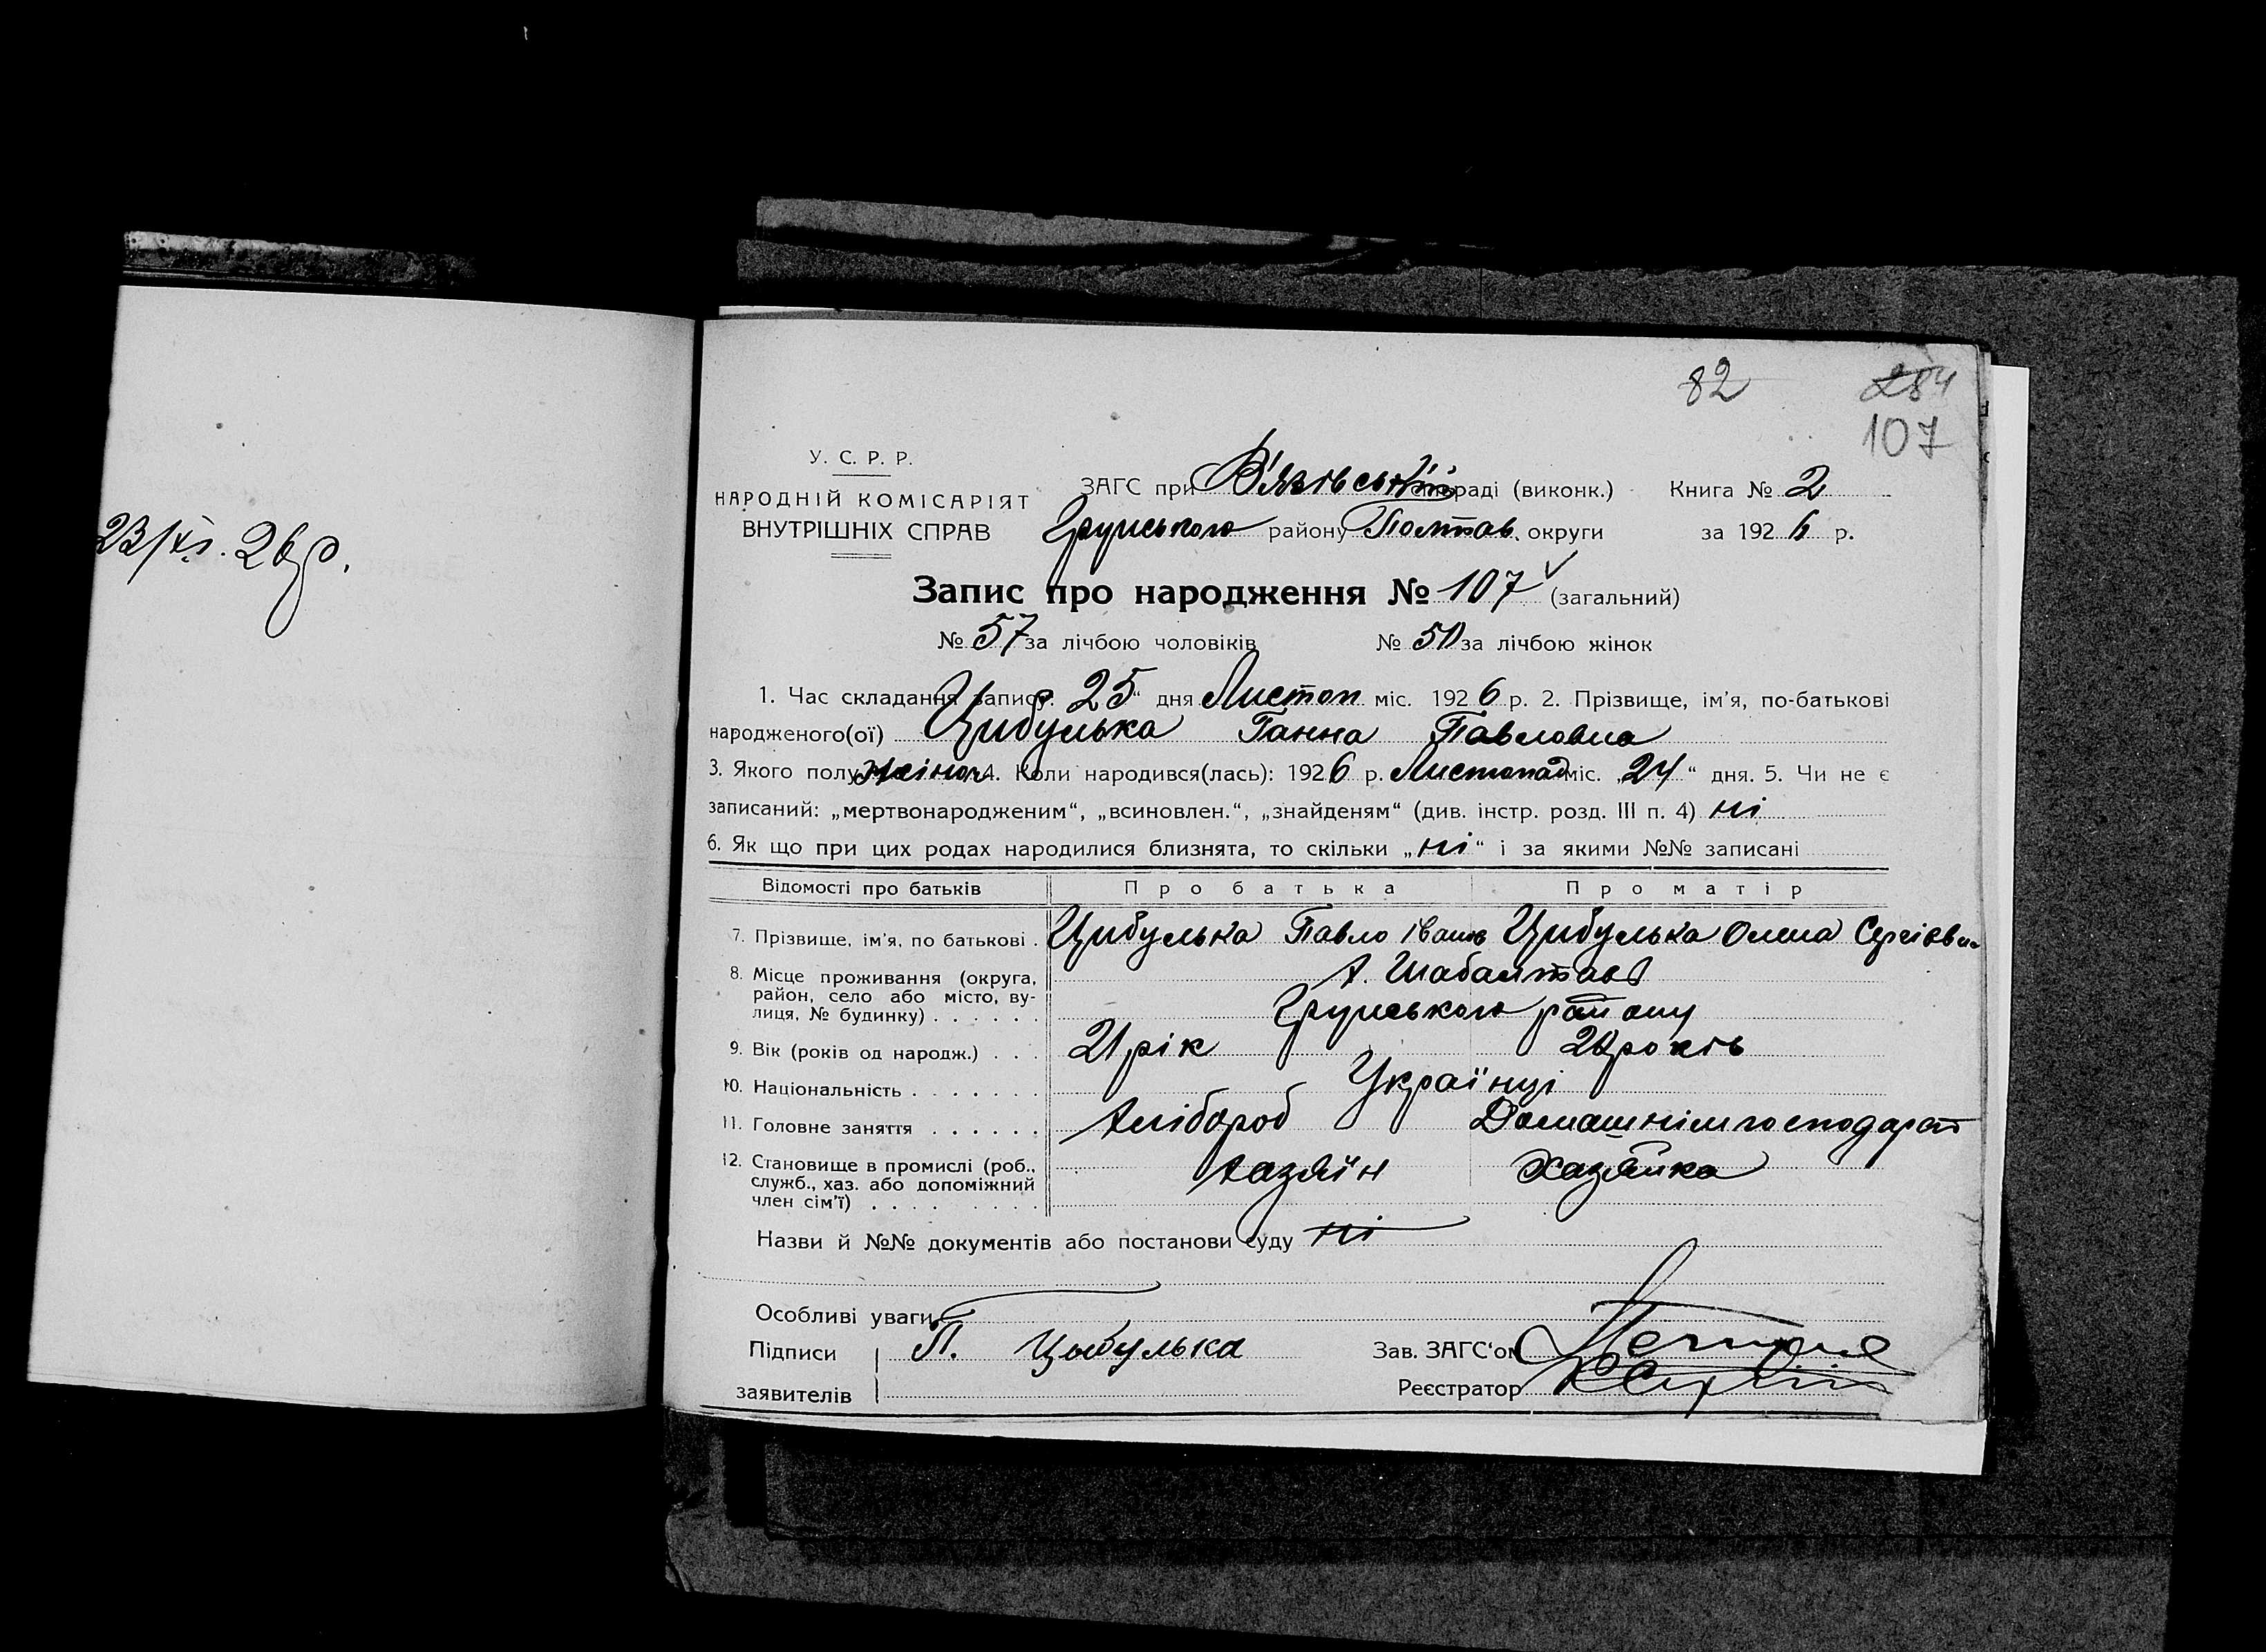 23/XI. 26 р.
82
284
107
У. С. Р. Р.
НАРОДНІЙ КОМІСАРІЯТ
ВНУТРІШНІХ СПРАВ
ЗАГС при В'язівській сільраді (виконк.) Книга № 2
Грунського району Полтав. округи за 1926 р.
Запис про народження № 107 (загальний)
№ 57 за лічбою чоловіків № 50 за лічбою жінок
1. Час складання запису. 25" дня Листоп міс. 1926 р. 2. Прізвище, ім'я, по-батькові
народженого(ої) Цибулька Ганна Павловна
3. Якого полу жіноч 4. Коли народився(лась): 1926 р. Листопад міс. „24" дня. 5. Чи не є
записаний: „мертвонародженим", „всиновлен.", „знайденям" (див. інстр. розд. III п. 4) ні
6. Як що при цих родах народилися близнята, то скільки „ні" і за якими №№ записані
Відомості про батьків Про батька Про матір
7. Прізвище, ім'я, по батькові . Цибулька Павло Іванів Цибулька Олена Сергієвн
8. Місце проживання (округа, район, село або місто, вулиця, № будинку) . . . . . . Х.
Грунського району
9. Вік (років од народж.) . . . 21 рік 20 років
10. Національність . . . . . . . Українці
11. Головне заняття . . . . . . Хлібороб Домашнім господарст
12. Становище в промислі (роб., служб., хаз. або допоміжний член сім'ї) . . . . . . . . . Хазяїн Хазяйка
Назви й №№ документів або постанови суду ні
Особливі уваги
Підписи П. Цыбулька Зав. ЗАГС'ом
заявителів Реєстратор